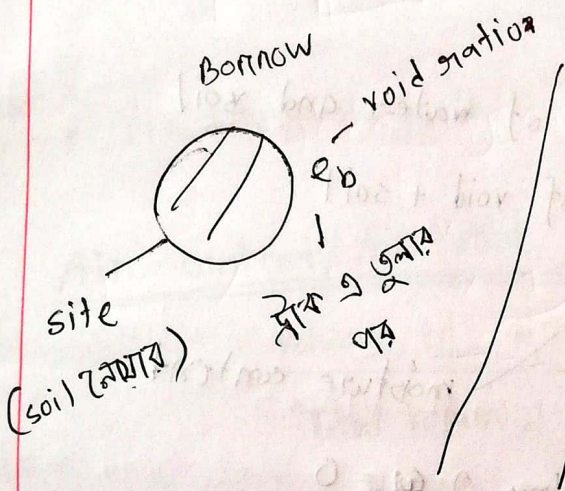 Borrow
void ratio
eb
site
(soil নেয়ার)
ট্রাক এ তুলার
পর